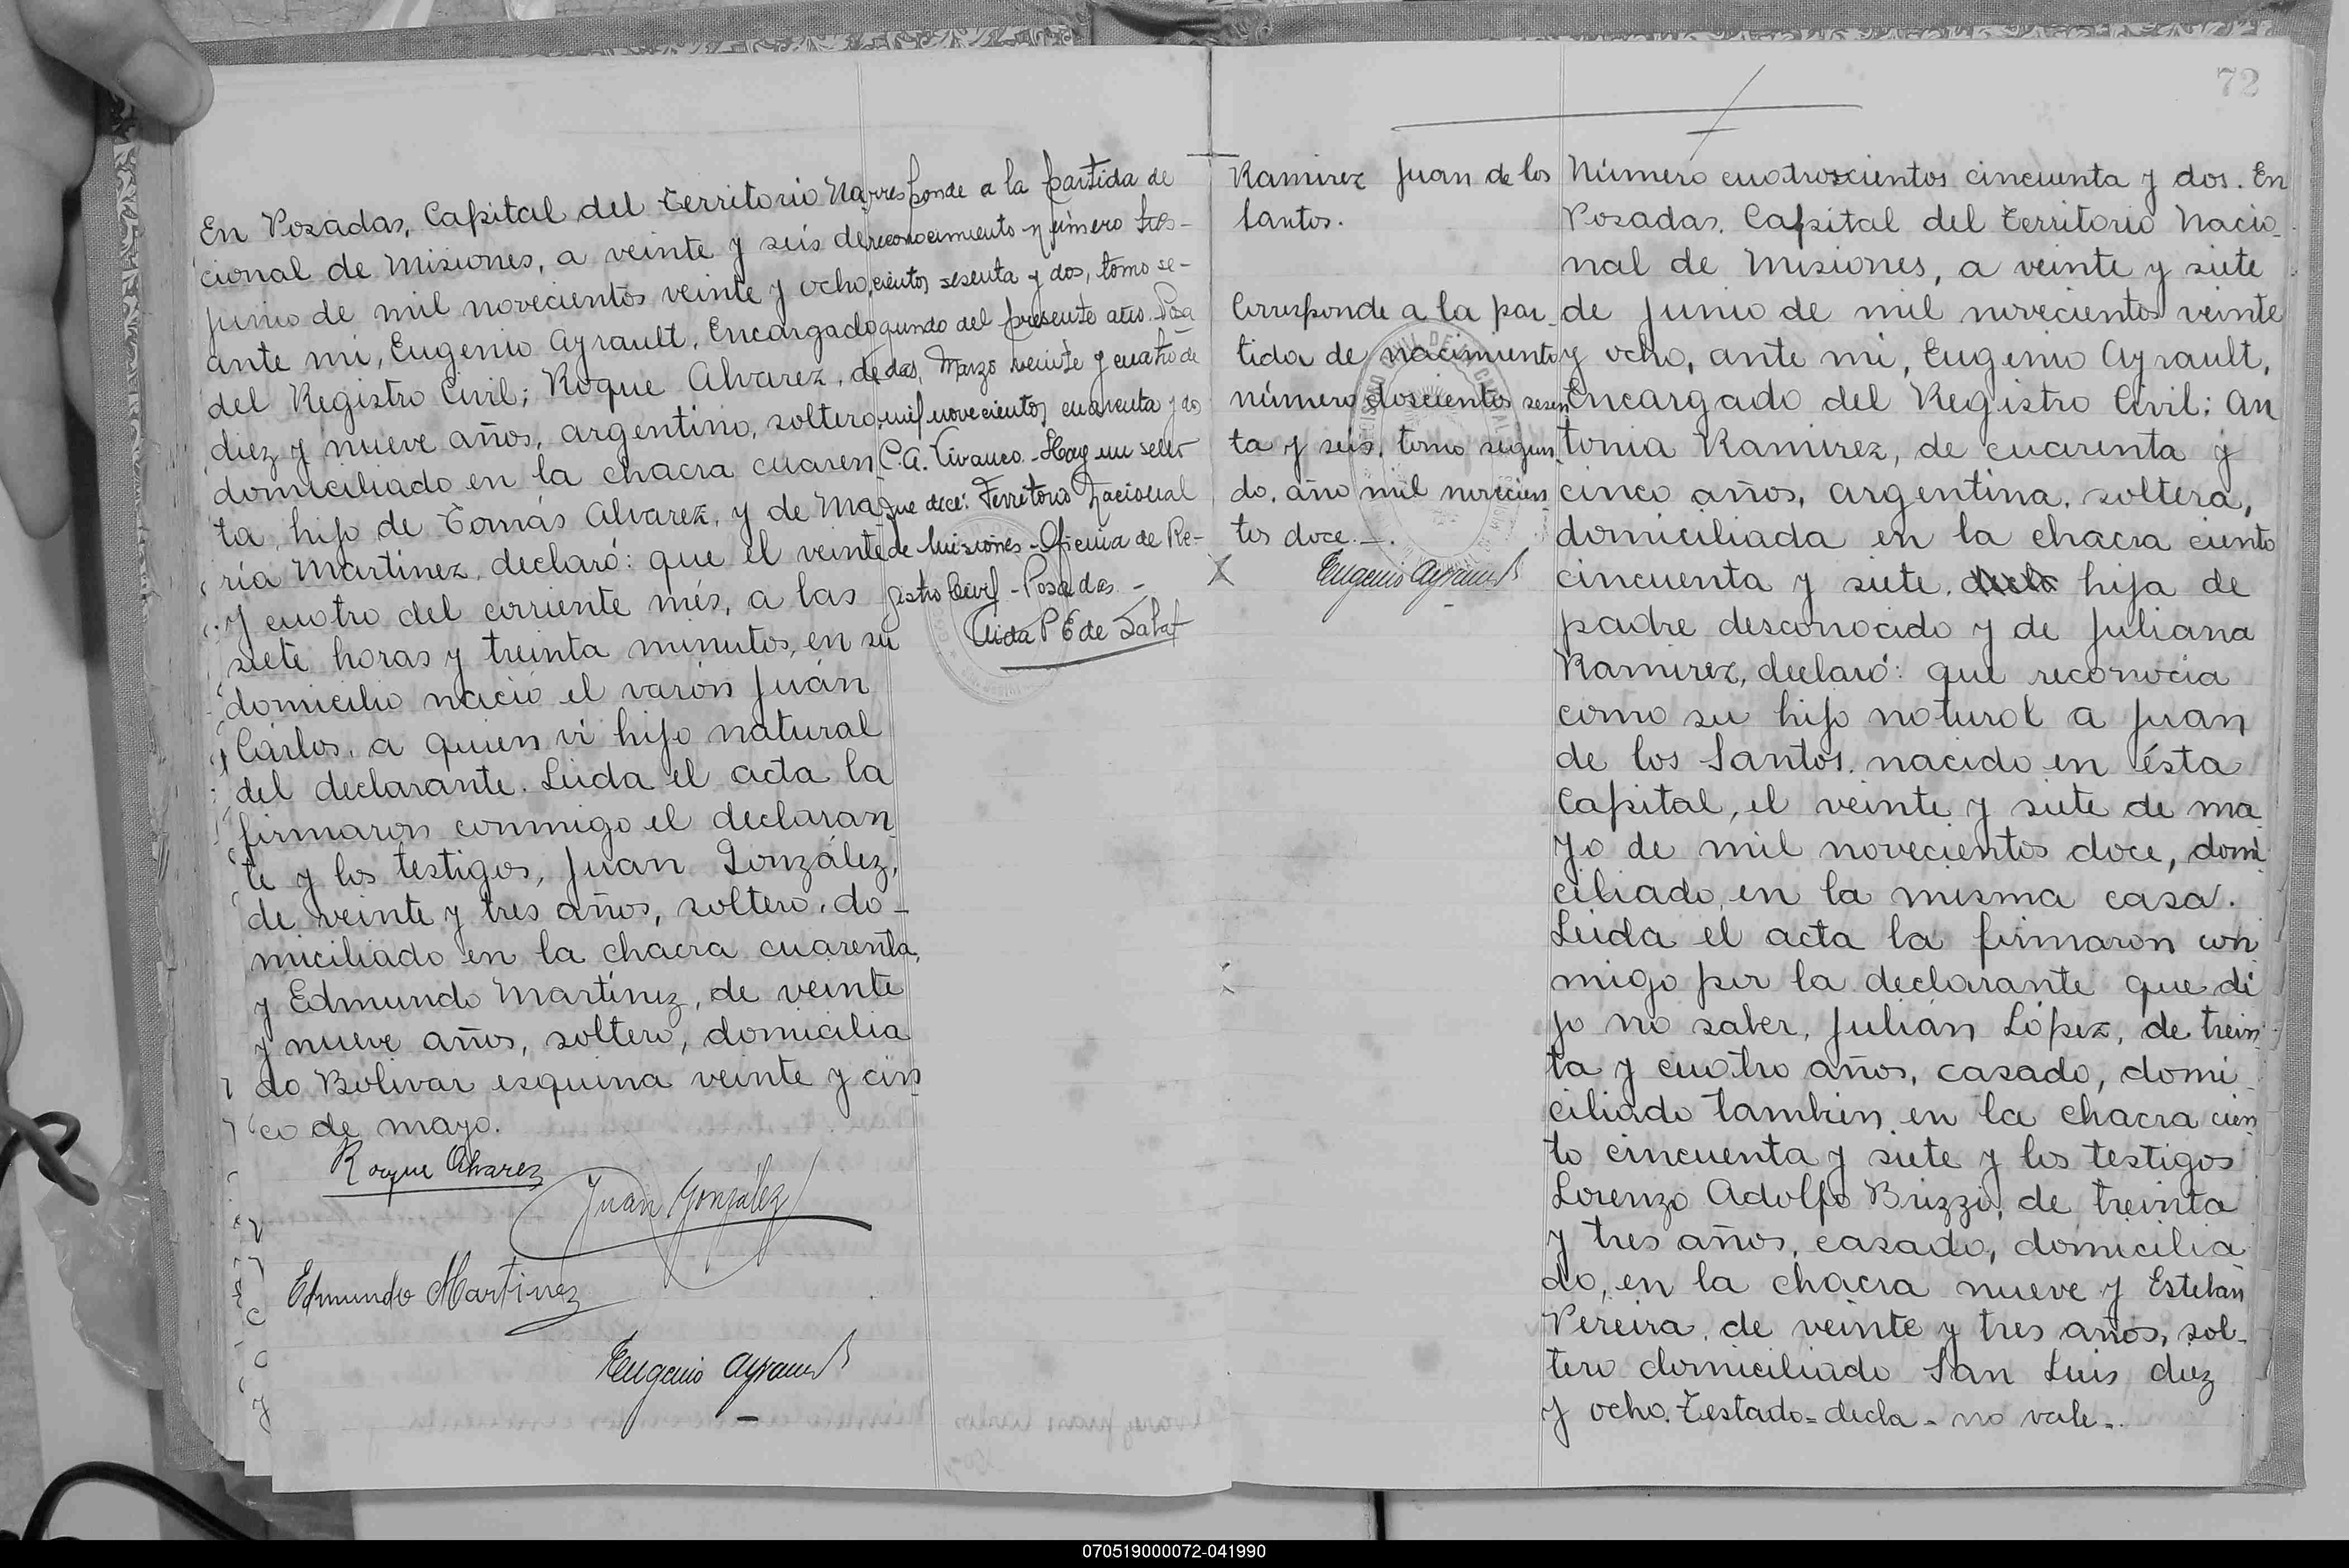 En Posadas, Capital del Territorio Na
cional de Misiones, a veinte y seis de
junio de mil novecientos veinte y ocho,
ante mi, Eugenio Ayrault, Encargado
del Registro Civil; Roque Alvarez, de
diez y nueve años, argentino, soltero,
domiciliado en la chacra cuaren
ta, hijo de Tomás Alvarez, y de Ma
ría Martinez, declaró: que el veinte
y cuatro del corriente més, a las
siete horas y treinta minutos, en su
domicilio nació el varón Juán
Cárlos, a quien vi hijo natural
del declarante. Leida el acta la
firmaron conmigo el declaran
te y los testigos, Juan González,
de veinte y tres años, soltero, do-
miciliado en la chacra cuarenta,
y Edmundo Martínez, de veinte
y nueve años, soltero, domicilia
do Bolivar esquina veinte y cin
co de mayo.
Roque Alvarez
Juan González
Edmundo Martinez
Eugenio Ayrault
rresponde a la partida de
reconocimiento número tres-
cientos sesenta y dos, tomo se-
gundo del presente año. Posa
das, Marzo veinte y cuatro de
mil novecientos cuarenta y do
C.A. Vivanco. Hay un sello
que dice: Territorio Nacional
de Misiones - Oficina de Re-
gistro Civil - Posadas. -
Aida P E de
72
Ramirez Juan de los
Santos.
Corresponde a la par-
tida de nacimiento
número doscientos sesen
ta y seis, tomo segun
do, año mil novecien
tos doce. -
Eugenio Ayrault
Número cuatroscientos cincuenta y dos. En
Posadas, Capital del Territorio Nacio
nal de Misiones, a veinte y siete
de junio de mil novecientos veinte
y ocho, ante mi, Eugenio Ayrault,
Encargado del Registro Civil; An
tonia Ramirez, de cuarenta y
cinco años, argentina, soltera,
domiciliada en la chacra ciento
cincuenta y siete, decla hija de
padre desconocido y de Juliana
Ramirez, declaró: que reconocia
como su hijo natural a Juan
de los Santos, nacido en ésta
Capital, el veinte y siete de ma
yo de mil novecientos doce, domi
ciliado en la misma casa.
Leida el acta la firmaron con
migo por la declarante que di
jo no saber, Julián López, de trein
ta y cuatro años, casado, domi
ciliado tambien en la chacra cien
to cincuenta y siete y los testigos
Lorenzo Adolfo Brizzo, de treinta
y tres años, casado, domicilia
do, en la chacra nueve y Esteban
Pereira, de veinte y tres años, sol-
tero domiciliado San Luis diez
y ocho. Testado=decla=no vale=.
070519000072-041990